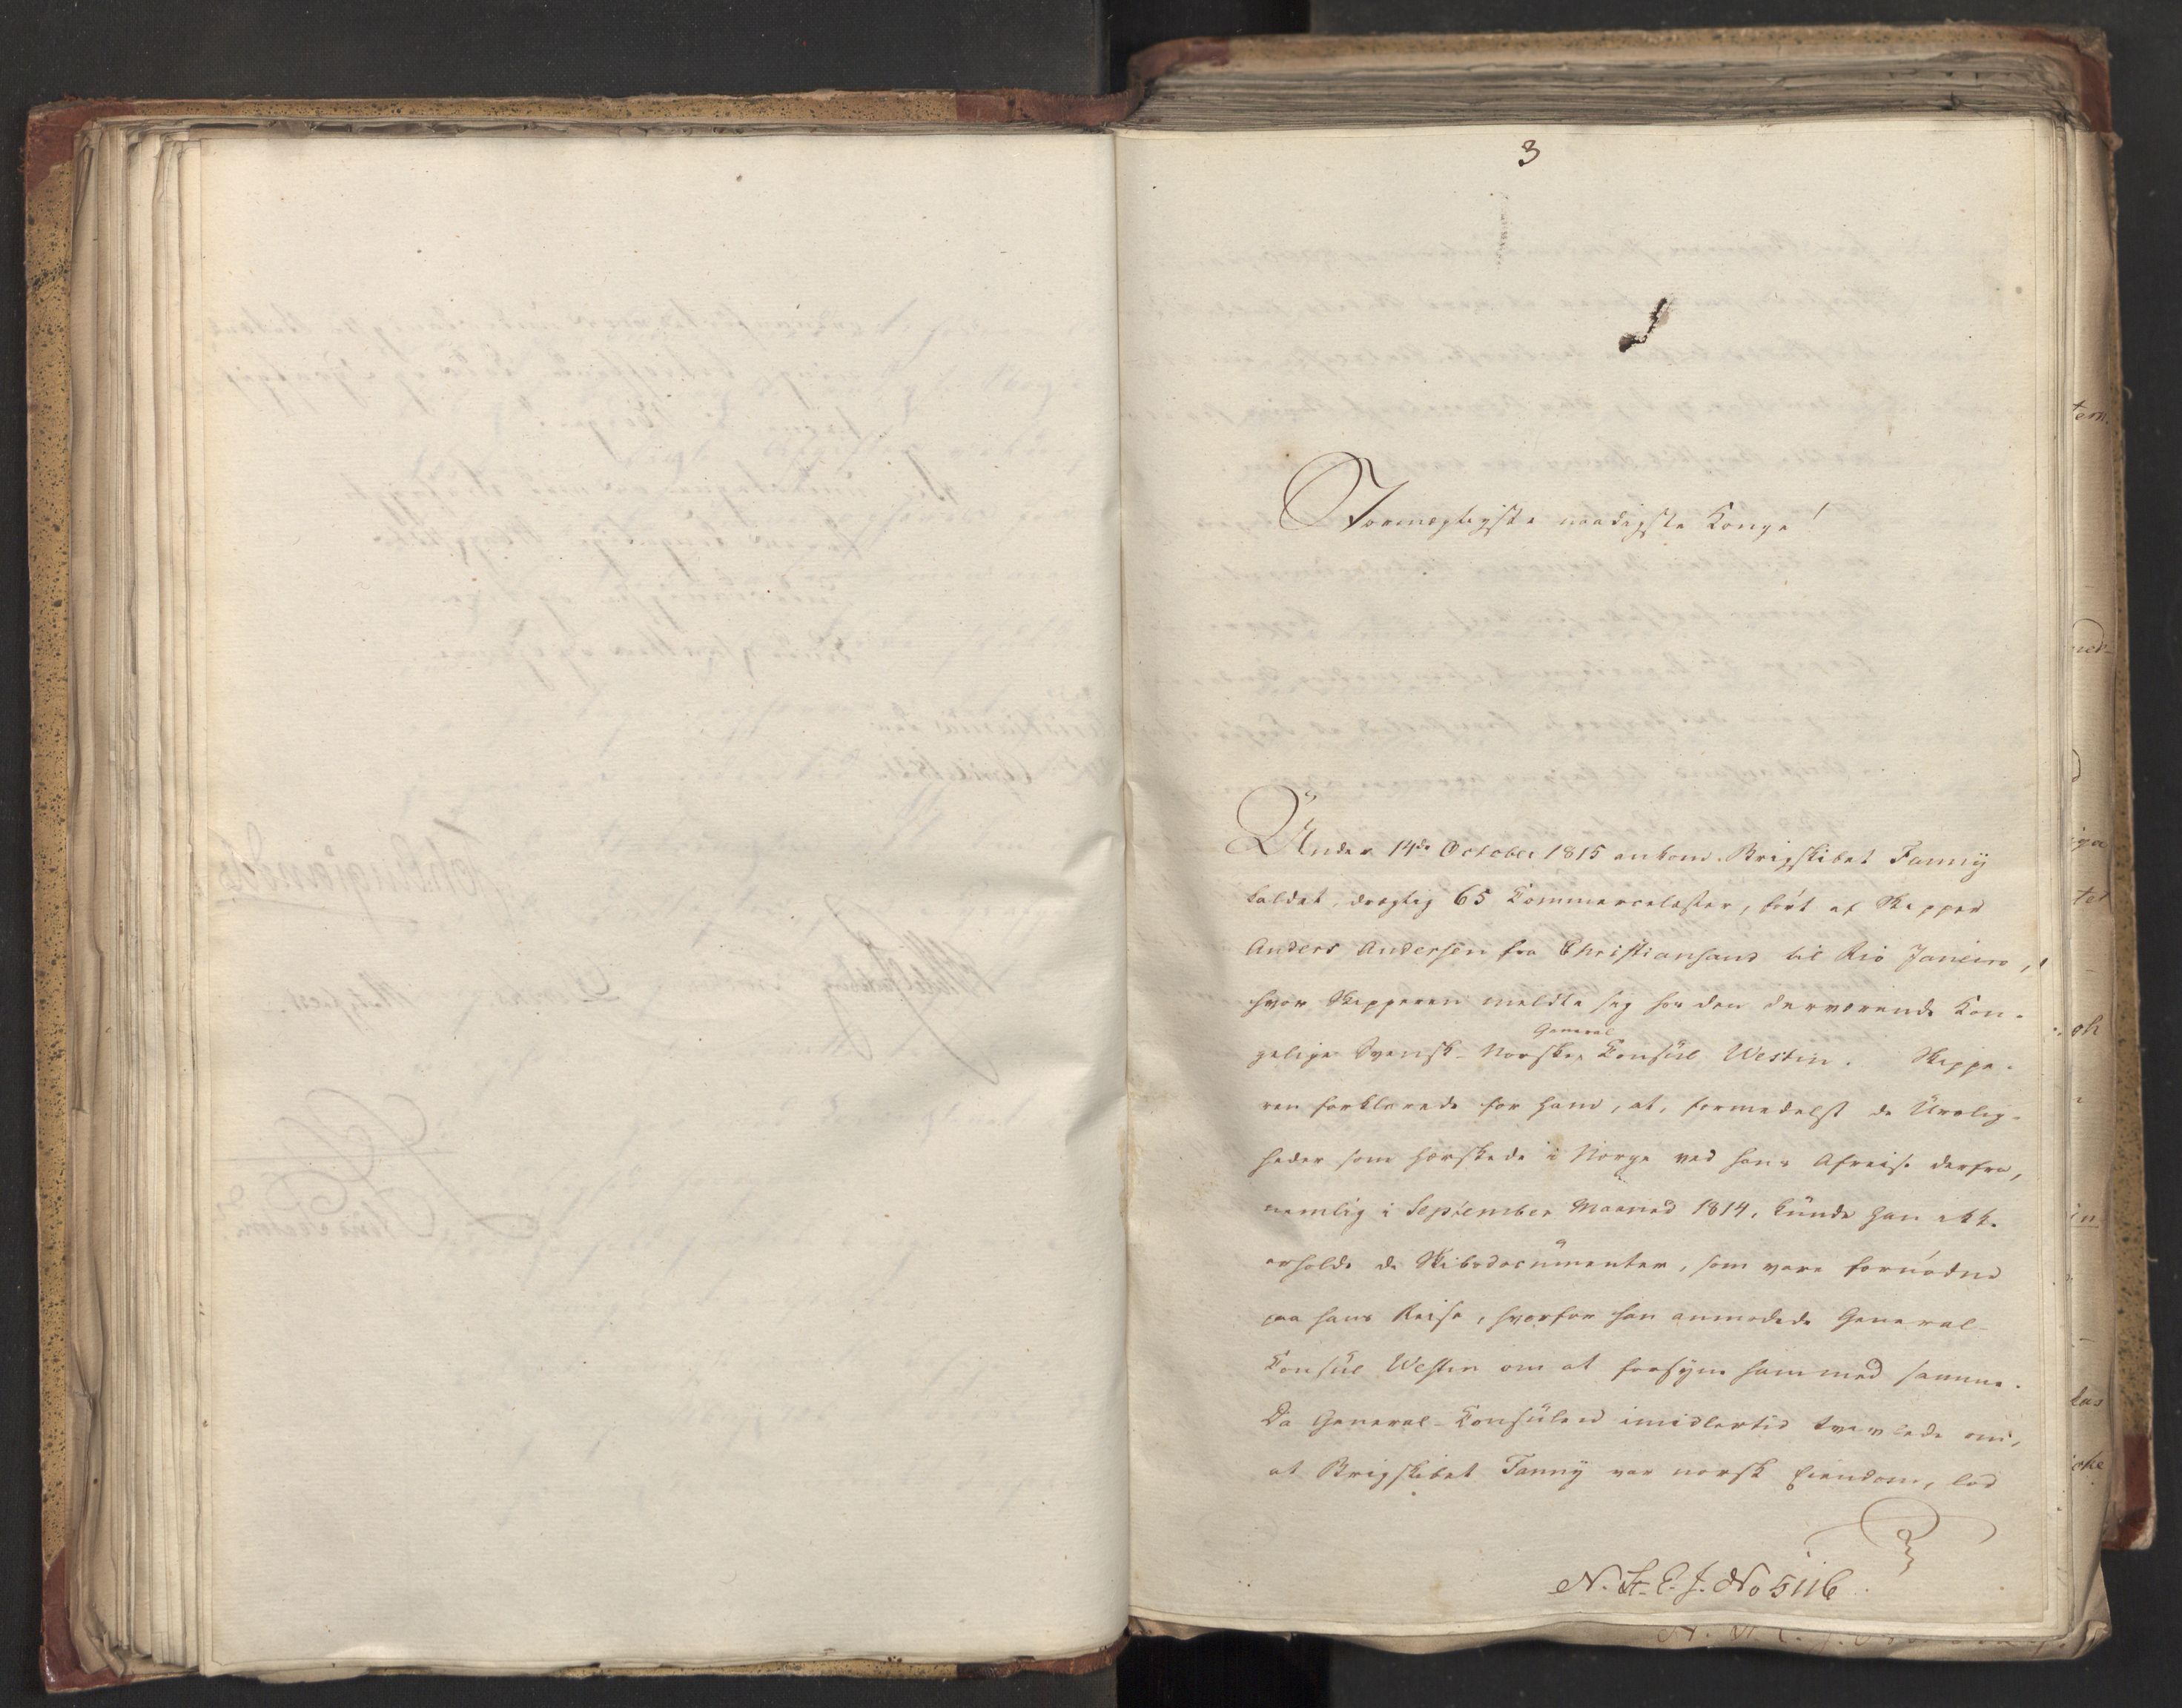 3
Stormægtigste naadigste Konge!
Under 14de October 1815 ankom Brigskibet Fanny
kaldet, drægtig 65 Commercelæster, ført af Skipper
Anders Andersen fra Christiansand til Rio Janeiro,
hvor Skipperen meldte sig hos den derværende Kon-
gelige Svensk-Norske General Consul Westin. Skippe-
ren forklarede for ham, at, formedelst de Urolig-
heder som herskede i Norge ved hans Afreise derfra,
nemlig i September Maaned 1814, kunde han ikke
erholde de Skibsdocumenter, som vare fornødne
paa hans Reise, hvorfor han anmodede General-
Consul Westin om at forsyne ham med samme.
Da General-Consulen imidlertid tvivlede om,
at Brigskibet Fanny var norsk Eiendom, lod
N. St. E. J. No 5116